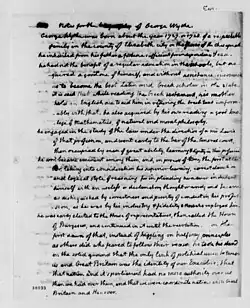 Notes for the biography of George Wythe.
George Wythe was born about the year 1727 or 1728 of a respectable
family in the county of Elizabeth city on the shores of the
he inherited from his father a fortune
he had not the benefit of a regular education in the schools, but ac-
quired a good one of himself, and without assistance, insomuch
as to become the best Latin and Greek scholar in the state.
it is said that while reading the Greek testament, his mother
held an English one to aid him in rendering the Greek text conform-
ably with that. he also acquired by his own reading a good know-
ledge of Mathematics, & natural and moral philosophy.
he engaged in the study of the law under the direction of a mr Lewis
of that profession, and went early to the bar of the General court,
then occupied by men of great ability, learning & dignity in their profession.
he soon became eminent among them, and, in process of time, the first at the
bar, taking into consideration his superior learning, correct
and logical style of reasoning, for in pleading he never indulged
himself with an useless or declamatory thought or word; and became
as distinguished by correctness and purity of conduct in his profes-
sion, as he was by his industry & fidelity to those who employed him.
he was early elected to the house of representatives, then called the House
of Burgesses, and continued in it until the revolution. on the
first dawn of that, instead of higgling on halfway principles
as others did who feared to follow their reason, he took his stand
on the solid ground that the only link of political union between
us and Great Britain was the identity of our Executive; that
that nation and it's parliament had no more authority over us
than we had over them, and that we were coordinate nations with Great
Britain and Hanover.